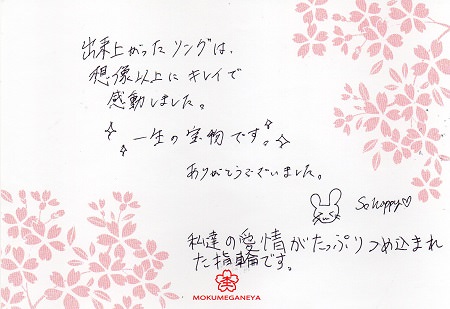 出来上がったリングは、
想像以上にキレイで
感動しました。
一生の宝物です。
ありがとうございました。
So happy♡
私達の愛情がたっぷりつめ込まれ
た指輪です。
MOKUMEGANEYA